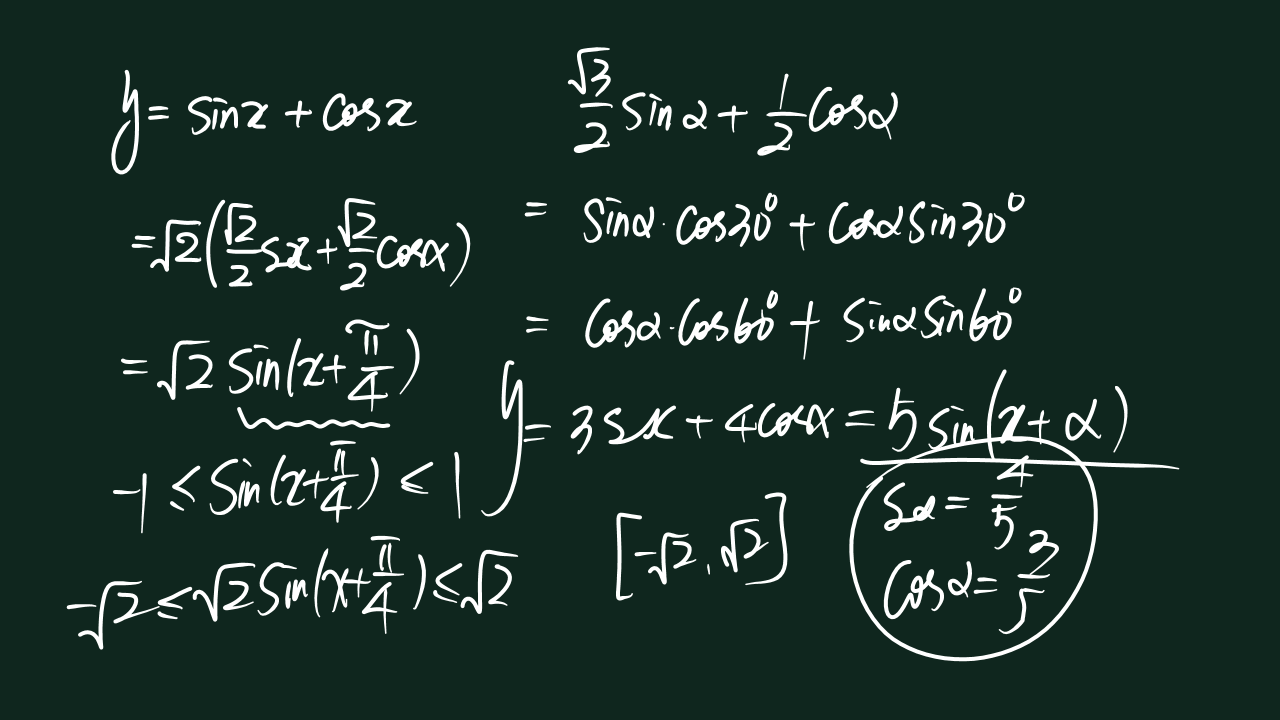 y = sinx + cosx
= √2(√2/2 sx + √2/2 cosx)
= √2 sin(x + π/4)
-1 ≤ sin(x + π/4) ≤ 1
-√2 ≤ √2 sin(x + π/4) ≤ √2
√3/2 sinα + 1/2 cosα
= sinα · cos30° + cosα sin30°
= cosα · cos60° + sinα sin60°
y = 3sx + 4cosx = 5sin(x + α)
[-√2, √2]
sα = 4/5
cosα = 3/5